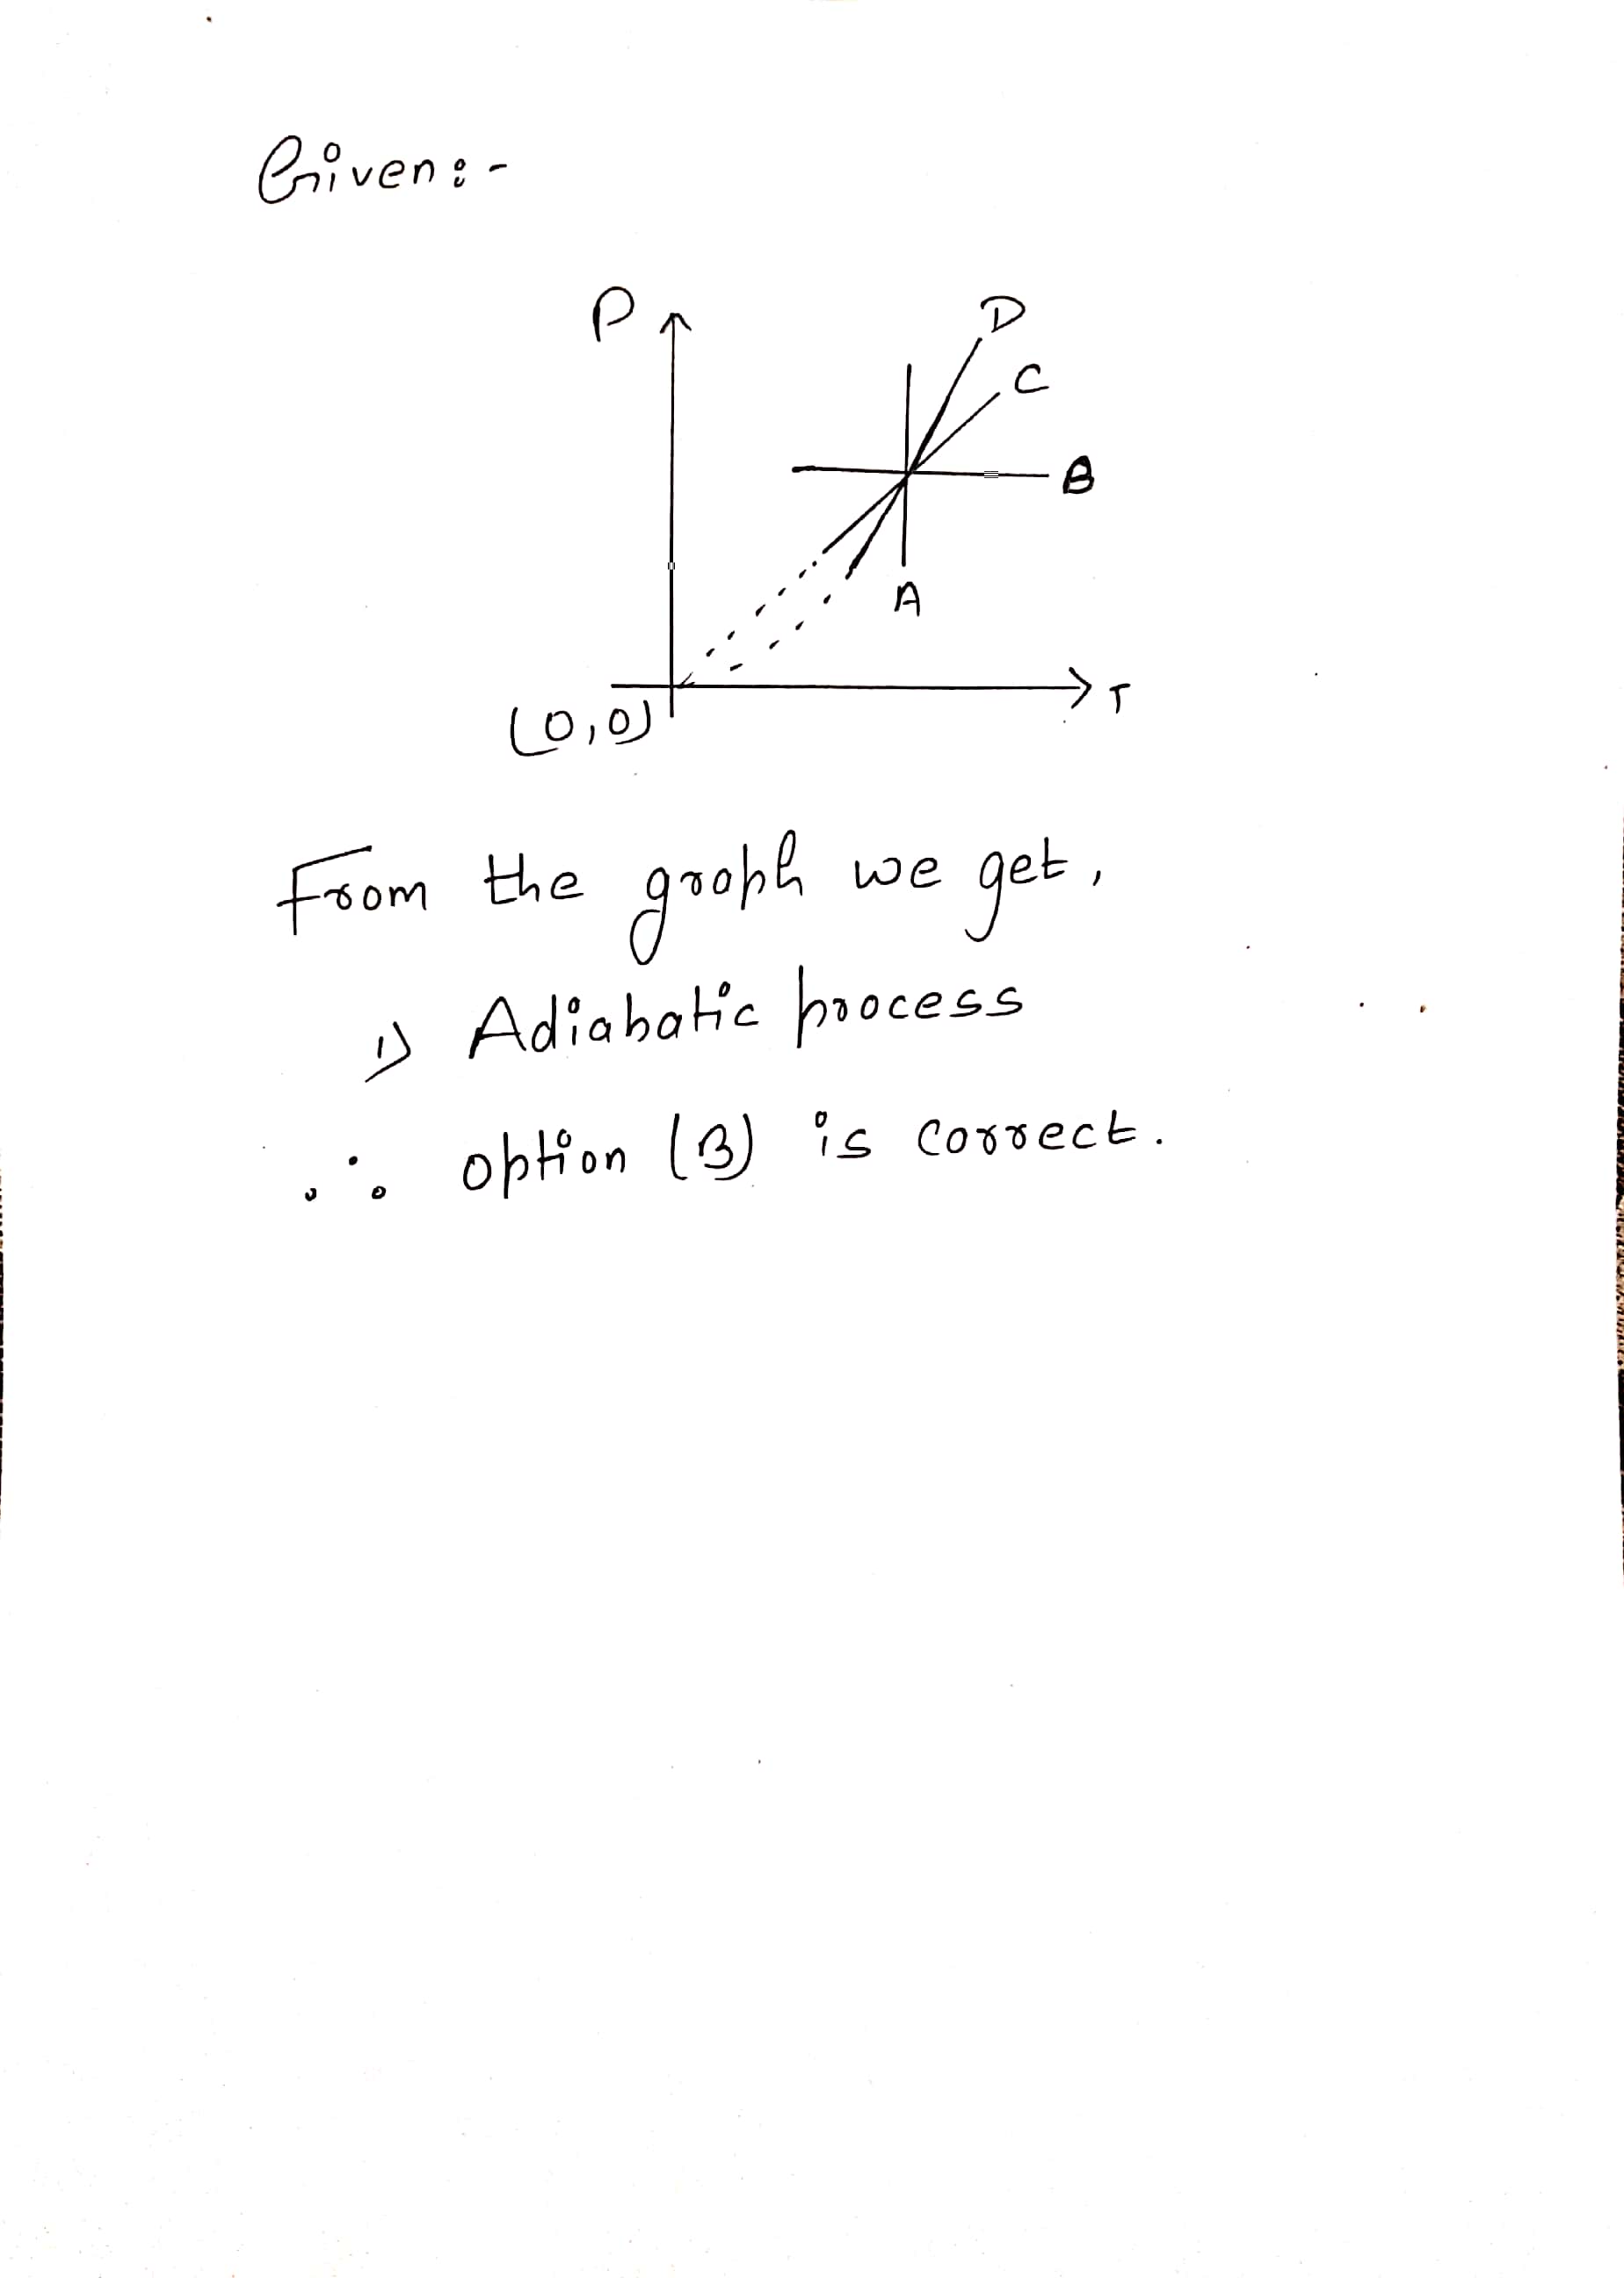 Given :-
P
D
C
B
A
T
(0,0)
From the graph we get,
1) Adiabatic process
∴ option (B) is correct.